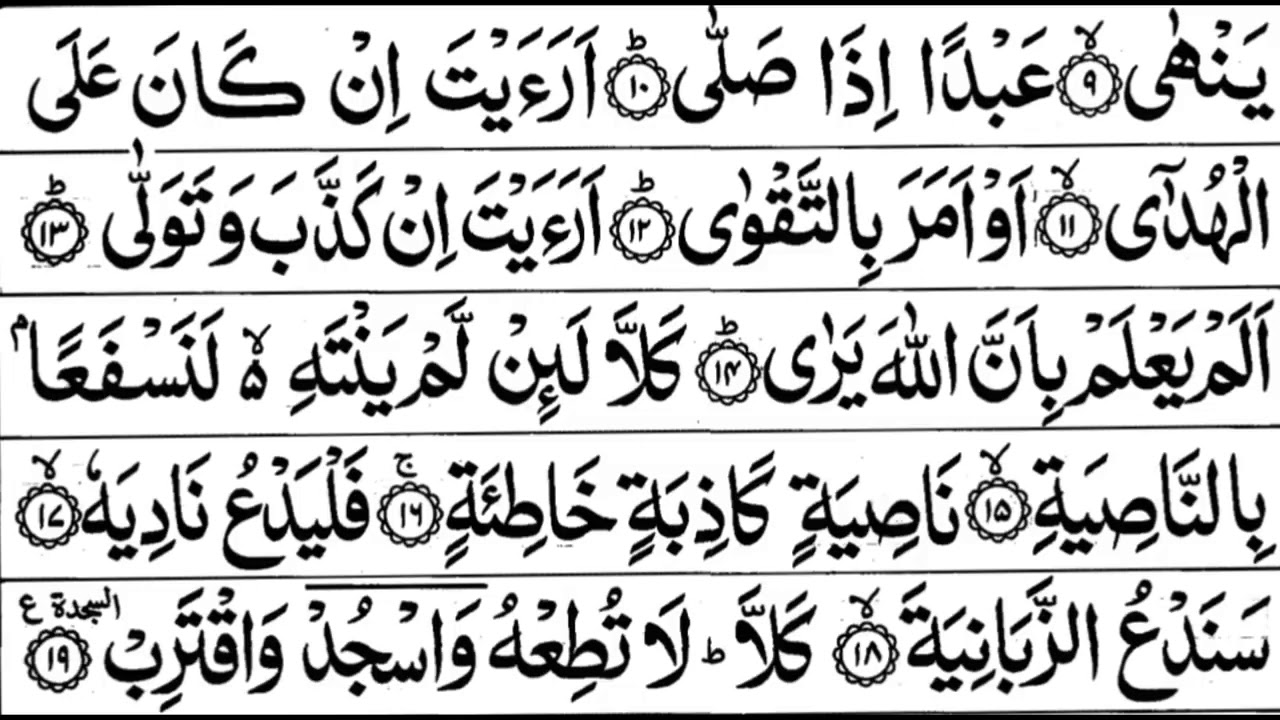 يَنْهٰى ۙ﴿۹﴾ عَبْدًا اِذَا صَلّٰى ؕ﴿۱۰﴾ اَرَءَيْتَ اِنْ كَانَ عَلَى
الْهُدٰٓى ۙ﴿۱۱﴾ اَوْ اَمَرَ بِالتَّقْوٰى ؕ﴿۱۲﴾ اَرَءَيْتَ اِنْ كَذَّبَ وَ تَوَلّٰى ؕ﴿۱۳﴾
اَلَمْ يَعْلَمْ بِاَنَّ اللّٰهَ يَرٰى ؕ﴿۱۴﴾ كَلَّا لَىِٕنْ لَّمْ يَنْتَهِ ۙ۬ لَنَسْفَعًاۢ
بِالنَّاصِيَةِ ۙ﴿۱۵﴾ نَاصِيَةٍ كَاذِبَةٍ خَاطِئَةٍ ۚ﴿۱۶﴾ فَلْيَدْعُ نَادِيَهٗ ۙ﴿۱۷﴾
سَنَدْعُ الزَّبَانِيَةَ ۙ﴿۱۸﴾ كَلَّا ؕ لَا تُطِعْهُ وَاسْجُدْ وَاقْتَرِبْ ﴿۱۹﴾ السجدة ع